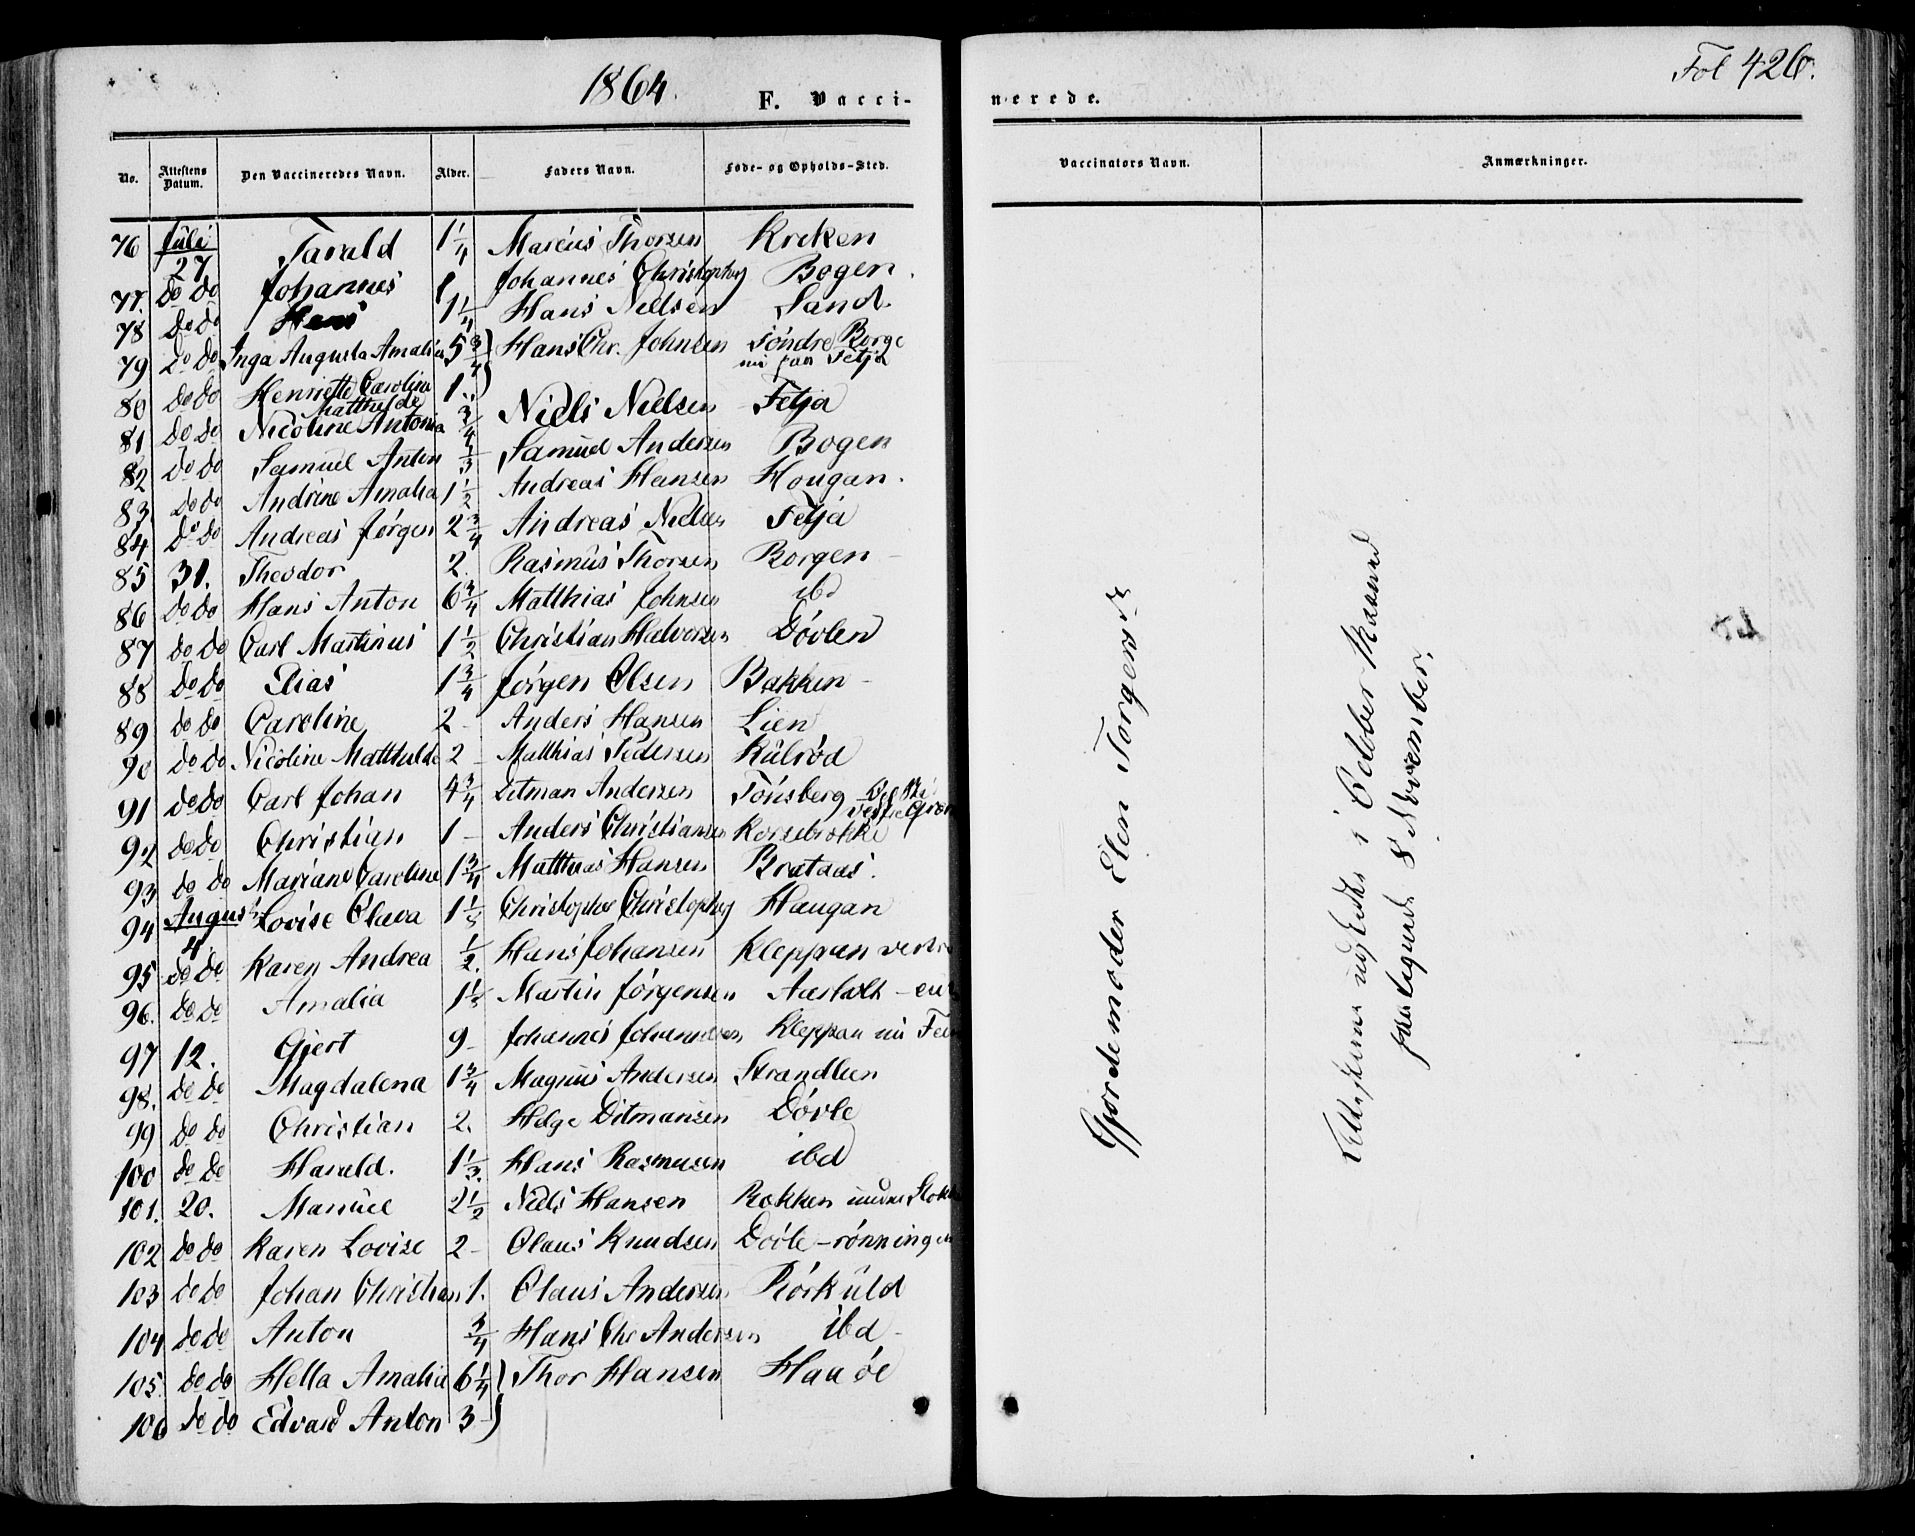 1864.
F. Vacci-
nerede.
Fol 426.
No. Attestens Datum. Den Vaccineredes Navn. Alder. Faders Navn. Føde- og Opholds-Sted.
Vaccinators Navn. Anmærkninger.
76 Juli 27 Tarald 1 1/4 Marcus Thorsen Kreken
77. do do Johannes 1 Johannes Christophs Bogen.
78 do do Hans 1 1/4 Hans Nielsen Sand.
79 do do Inga Augusta Amalia 5 3/4 ) Hans Chr. Johnsen Söndre Borge
nu paa Fetja
80 do do Henriette Caroline Matthilde 1.. )
81 do do Nicoline Antonia 3/4 Niels Nielsen Fetja
82 do do Samuel Anton 1/3 Samuel Andersen Bogen
83 do do Andrine Amalia 1 1/2 Andreas Hansen Hougan.
84 do do Andreas Jørgen 2 3/4 Andreas Nielsen Fetja
85 31. Theodor 2. Rasmus Thorsen Borgen
86 do do Hans Anton 6 3/4 Matthias Johnsen ibd
87 do do Carl Martinus 1 1/2 Christian Halvorsen Dövlen
88 do do Elias 1 3/4 Jørgen Olsen Bakken
89 do do Caroline 2 - Anders Hansen Lien
90 do do Nicoline Matthilde 2 - Matthias Pedersen Kulrød
91 do do Carl Johan 4 3/4 Ditman Andersen Tönsberg
92 do do Christian 1 - Anders Christiansen Korsebrekke
93 do do Mariane Caroline 1 3/4 Matthias Hansen Brataas.
94 August 4 Lovise Olava 1 1/3 Christopher Christophs Haugan
95 do do Karen Andrea 1/2. Hans Johansen Kleppan
96. do do Amalia 1 1/3 Martin Jørgensen Aasholt
97 12. Gjert 9 - Johannes Johannesen Kleppan nu
98. do do Magdalena 1 3/4 Magnus Andersen Strandlien
99 do do Christian 2. Helge Ditmansen Dövle
100 do do Harald. 1 1/3. Hans Rasmusen ibd
101. 20. Manuel 2 1/2 Niels Hansen Bakken
102 do do Karen Lovise 2 - Olaus Knudsen Dövle-rönningen
103 do do Johan Christian 1. Olaus Andersen Rörkuld
104 do do Anton 3/4 Hans Chr Andersen ibd -
105. do do Hella Amalia 6 1/4 ) Thor Hansen Haa öe
106 do do Edvard Anton 3 - )
Gjordemoder Elen Torgersd:
Attesterne udstedte i October Maaned
8 November.